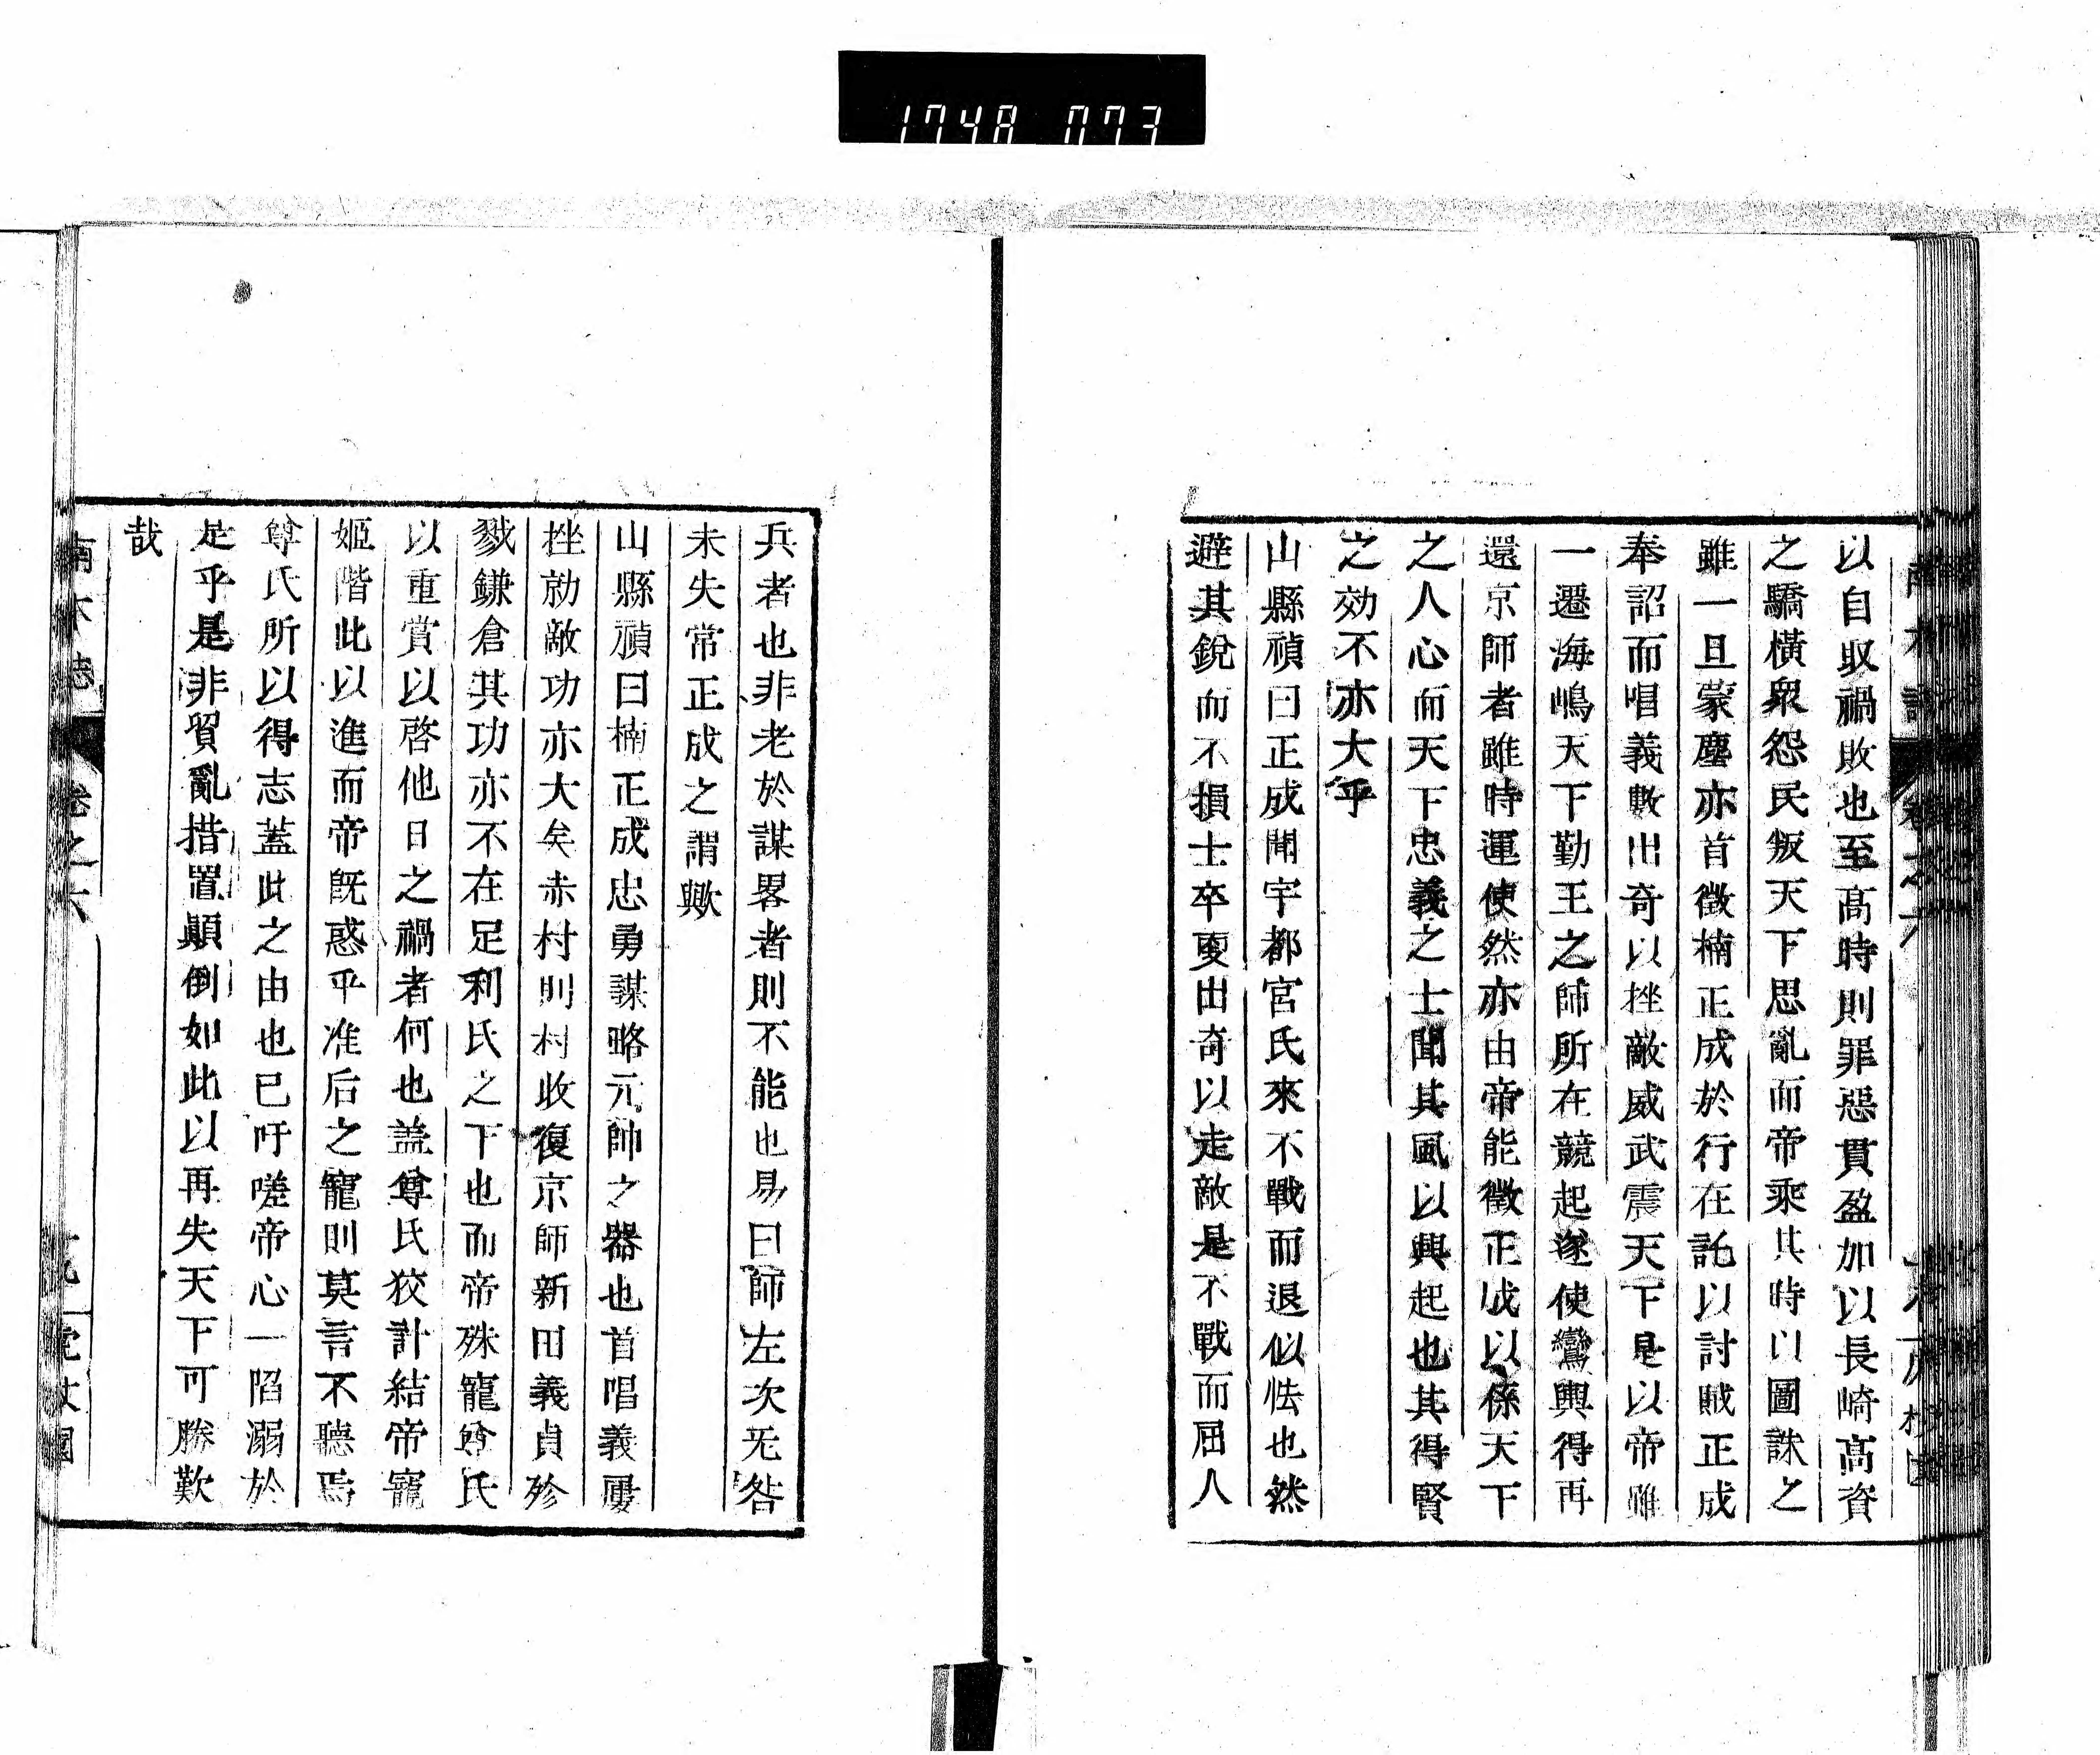 1748 073
以自収禍敗也至高時則罪惡貫盈加以長崎高資
之驕橫衆怨民叛天下思亂而帝乘其時以圖誅之
雖一旦蒙塵亦首徵楠正成於行在託以討賊正成
奉詔而唱義數出奇以挫敵威武震天下是以帝雖
一遷海嶋天下勤王之師所在競起遂使鸞輿得再
還京師者雖時運使然亦由帝能徵正成以係天下
之人心而天下忠義之士聞其風以興起也其得賢
之効不亦大乎
山縣禎曰正成聞宇都宮氏來不戰而退似怯也然
避其銳而不損士卒更出奇以走敵是不戰而屈人
兵者也非老於謀畧者則不能也易曰師左次无咎
未失常正成之謂歟
山縣禎曰楠正成忠勇謀略元帥之器也首唱義屢
挫勍敵功亦大矣赤村則村收復京師新田義貞殄
戮鎌倉其功亦不在足利氏之下也而帝殊寵尊氏
以重賞以啓他日之禍者何也盖尊氏狡計結帝寵
姬階此以進而帝既惑乎准后之寵則莫言不聽焉
尊氏所以得志蓋此之由也已吁嗟帝心一陷溺於
是乎是非貿亂措置顚倒如此以再失天下可勝歎
哉
卷之六